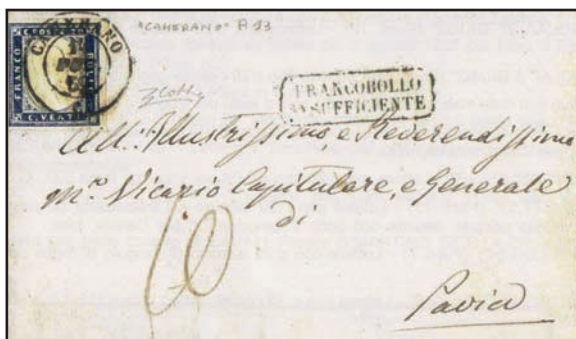 "CAMERANO" P. 13
FRANCO
C. POSTE
BOLLO
C. VENTI
FRANCOBOLLO
INSUFFICIENTE
All'Illustrissimo, e Reverendissimo
M.o Vicario Capitulare, e Generale
di
60
Pavia